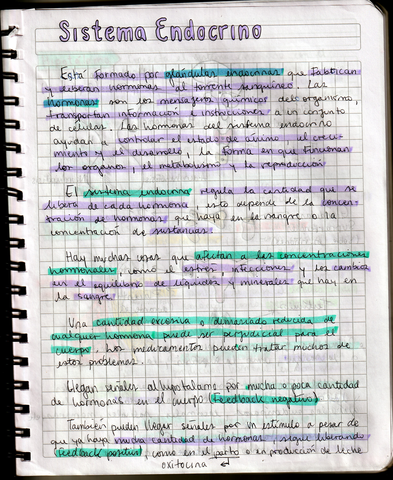 Sistema Endocrino
Está formado por glándulas endocrinas que fabrican
y liberan hormonas al torrente sanguíneo. Las
hormonas son los mensajeros químicos del organismo,
transportan información e instrucciones a un conjunto
de células. Las hormonas del sistema endocrino
ayudan a controlar el estado de ánimo, el creci-
miento y el desarrollo, la forma en que funcionan
los órganos, el metabolismo y la reproducción
El sistema endocrino regula la cantidad que se
libera de cada hormona, esto depende de la concen-
tración de hormonas que haya en la sangre o la
concentración de sustancias.
Hay muchas cosas que afectan a las concentraciones
hormonales, como el estrés, infecciones y los cambios
en el equilibrio de líquidos y minerales que hay en
la sangre.
Una cantidad excesiva o demasiado reducida de
cualquier hormona puede ser perjudicial para el
cuerpo. Los medicamentos pueden tratar muchos de
estos problemas.
Llegan señales al hipotálamo por mucha o poca cantidad
de hormonas en el cuerpo (Feedback negativo)
También pueden llegar señales por un estímulo a pesar de
que ya haya mucha cantidad de hormonas, sigue liberando
(Feedback positivo), como en el parto o en producción de leche
oxitocina